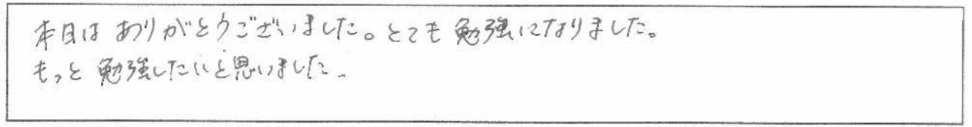 本日は ありがとうございました。とても 勉強になりました。
もっと 勉強したいと思いました